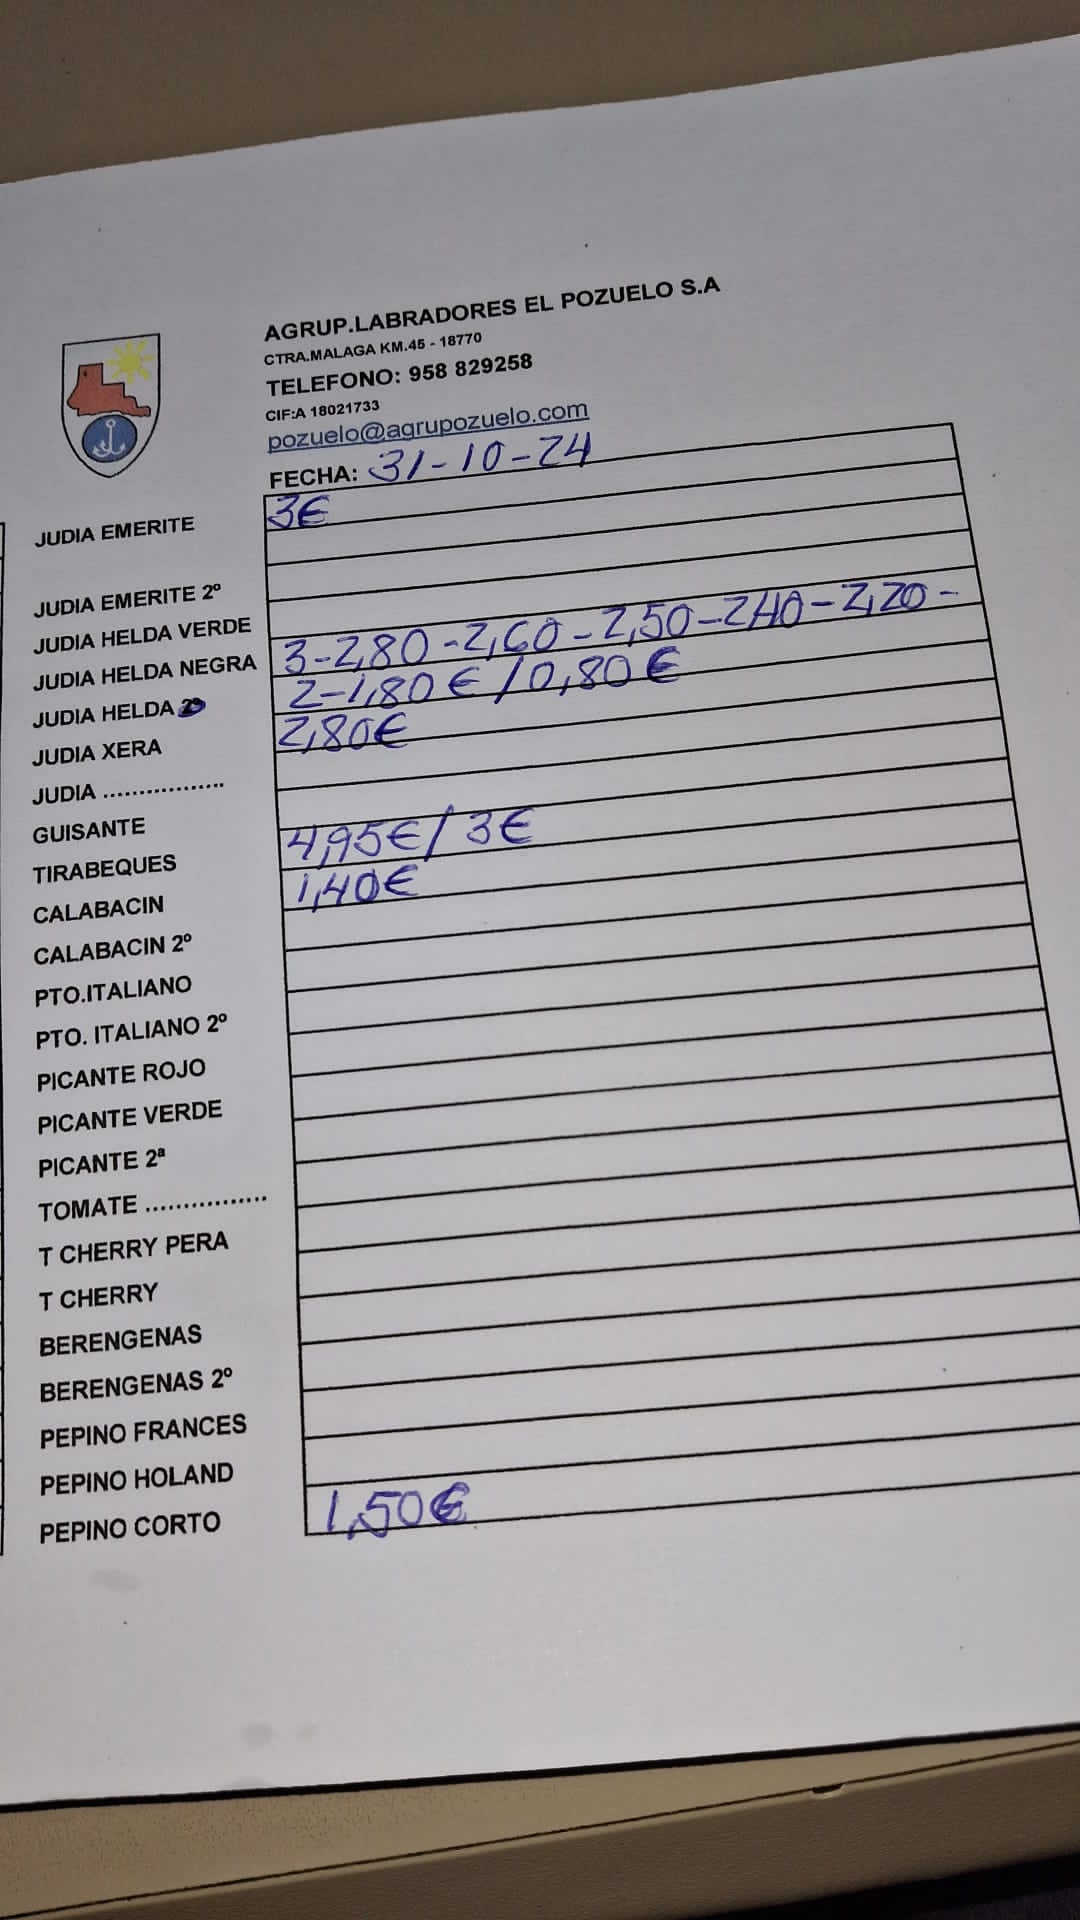 AGRUP.LABRADORES EL POZUELO S.A
CTRA.MALAGA KM.45 - 18770
TELEFONO: 958 829258
CIF:A 18021733
pozuelo@agrupozuelo.com
FECHA: 31-10-24
JUDIA EMERITE 3€
JUDIA EMERITE 2º
JUDIA HELDA VERDE
JUDIA HELDA NEGRA 3-2,80-2,60-2,50-2,40-2,20-
JUDIA HELDA 2-1,80€/0,80€
JUDIA XERA 2,80€
JUDIA .................
GUISANTE
TIRABEQUES 4,95€/3€
CALABACIN 1,40€
CALABACIN 2º
PTO.ITALIANO
PTO. ITALIANO 2º
PICANTE ROJO
PICANTE VERDE
PICANTE 2ª
TOMATE ................
T CHERRY PERA
T CHERRY
BERENGENAS
BERENGENAS 2º
PEPINO FRANCES
PEPINO HOLAND
PEPINO CORTO 1,50€